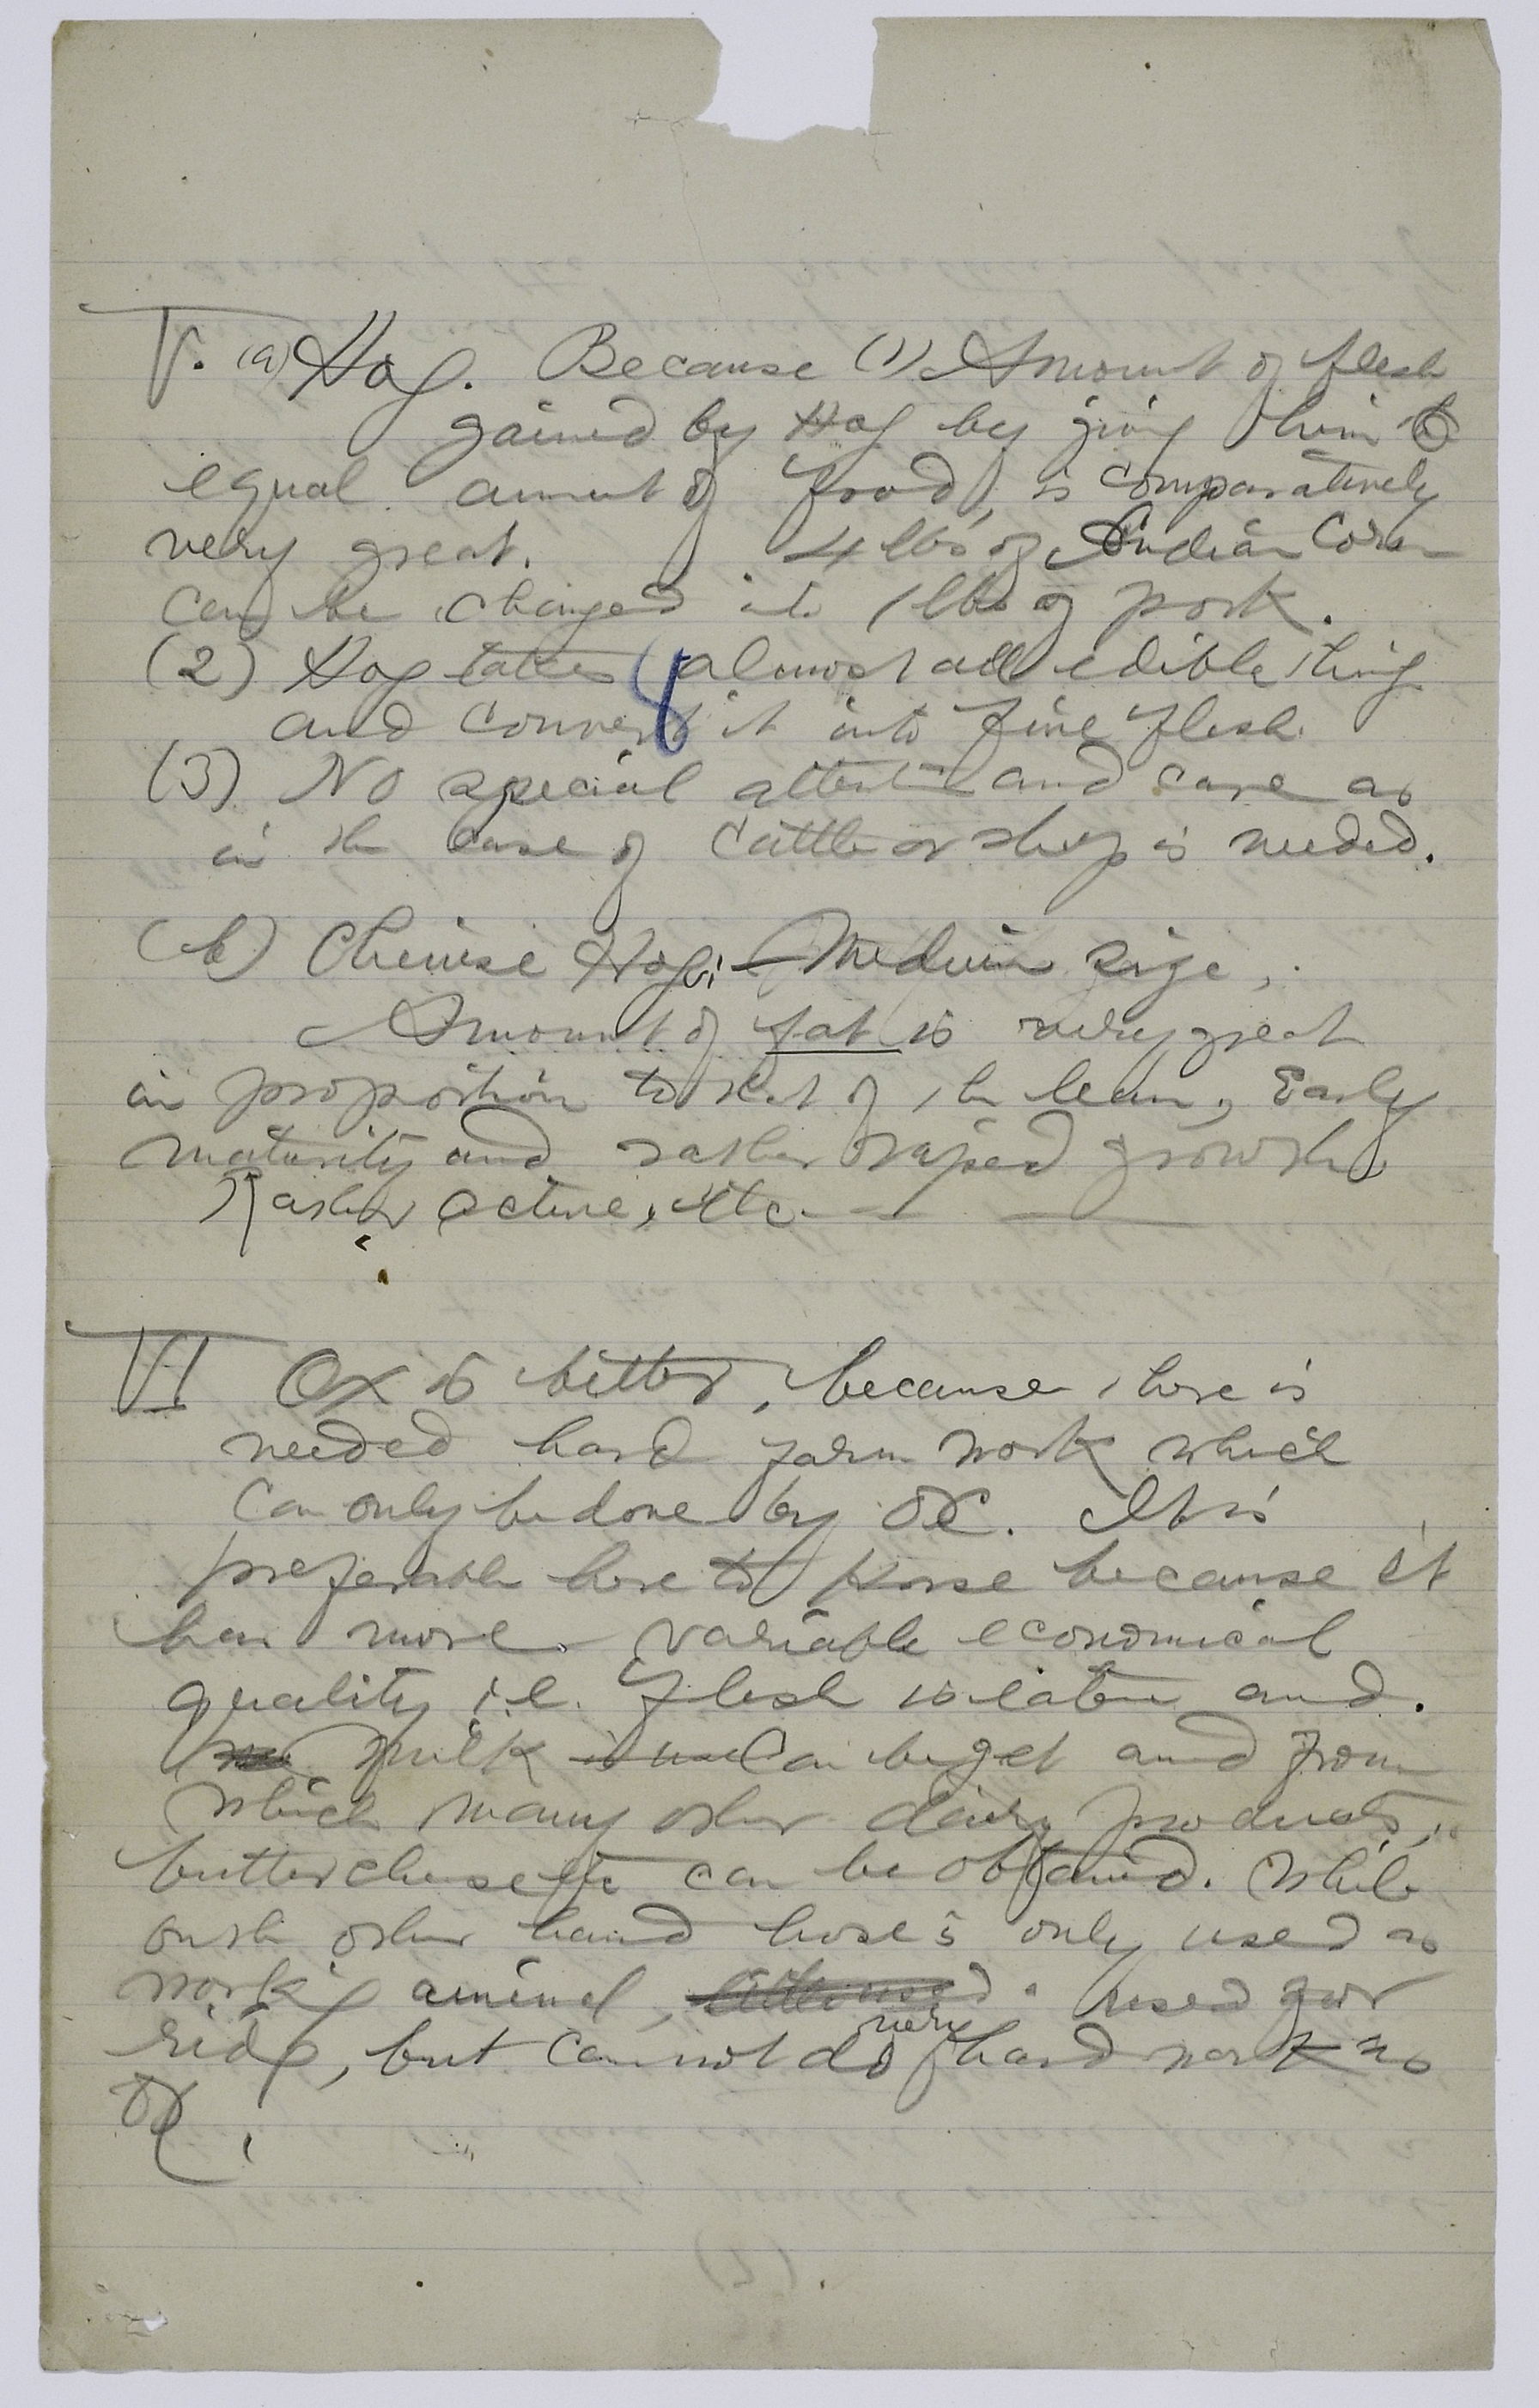 V. (a) Hog. Because (1) Amount of flesh
gained by Hog by giving him
equal amount of food, is comparatively
very great. 4 lbs of Indian Corn
can be changed into 1 lbs of pork.
(2) Hog takes almost all edible thing
and convert it into fine flesh.
8
(3) No special attention and care as
in the case of cattle or sheep is needed.
(b) Cheinese Hog:— Medium size,
Amount of fat is very great
in proportion to that of the lean, Early
maturity and rather rapid growth.
Rather active, etc.
VI Ox is better, because there is
needed hard farm work which
can only be done by ox. It is
preferable here to horse because it
has more variable economical
quality i.e. flesh is eaten and.
milk is use Can be get and from
which many other dairy products,
butter cheese etc can be obtained. While
on the other hand horse is only used as
working animal, used for
ride, but cannot do very hard work as
ox.
(2).